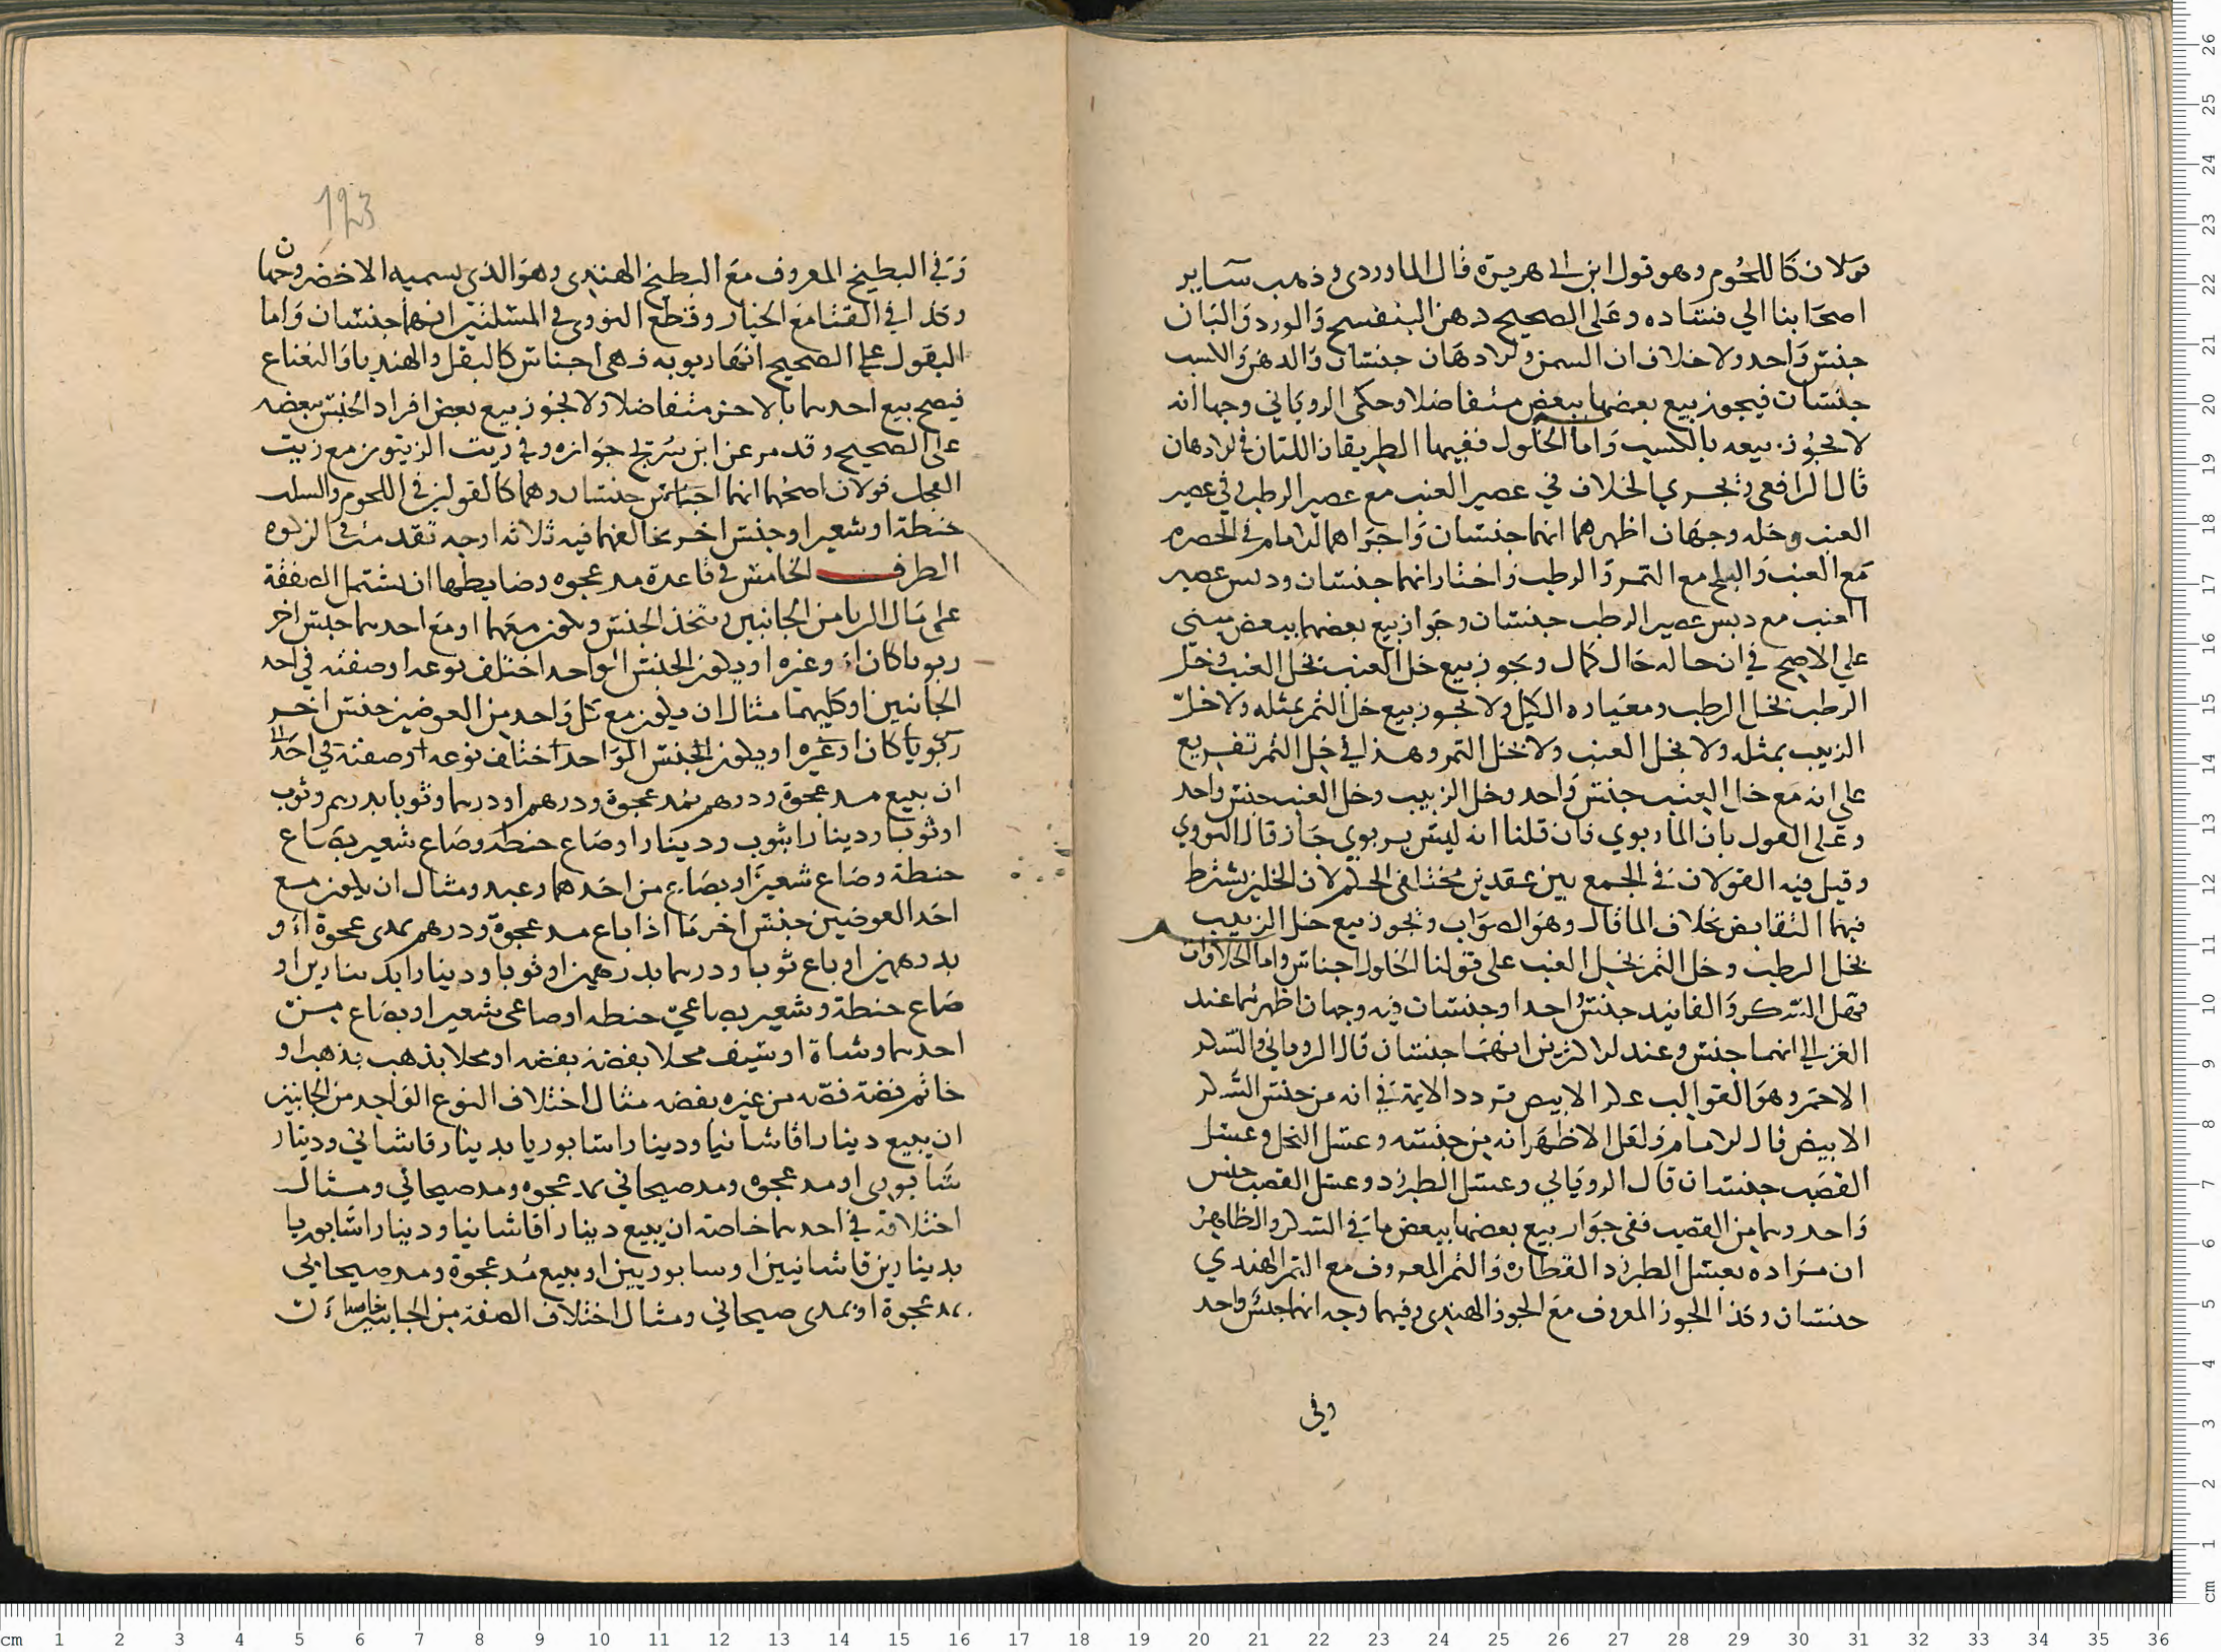 قولان كاللحُوم وهو قول ابن ابي هريرة قال الماوردي وذهب سَاير
اصحَابنا الي فسَاده وعَلى الصحيح دهن البنفسج وَالورد وَالبَان
جنسٌ وَاحد ولا خلاف ان السمن والادهَان جنسَان وَالدهن وَالكسب
جنسَان فيجوز بيع بعضها ببعض متفاضلا وحكى الروياني وجها انه
لا يجُوز بيعه بالكسب وَاما الخُلول ففيها الطريقان اللتان في الادهان
قال الرافعي ويجري الخلاف في عصير العنب مع عصير الرطب وفي عصير
العنب وخله وجهَان اظهرهما انهما جنسَان وَاجرَاهما الامام في الحصرم
مَع العنب وَالبلح مع التمر وَالرطب وَاختار انهما جنسَان ودبس عصير
العنب مع دبس عصير الرطب جنسَان وجوَاز بيع بعضها ببعض مبني
علي الاصح في ان حاله حَال كمال ويجوز بيع خل العنب بخل العنب وخل
الرطب بخل الرطب ومعيَاره الكيل ولا يجوز بيع خل التمر بمثله ولا خل
الزبيب بمثله ولا بخل العنب ولا بخل التمر وهذا في خل التمر تفريع
على انه مَع خل العنب جنسٌ وَاحد وخل الزبيب وخل العنب جنس واحد
وعَلى القول بان الماء ربوي فان قلنا انه ليسَ بربوي جَاز قال النووي
وقيل فيه القولان في الجمع بين عقدين مختلفي الحكم لان الخلين يشترط
فيهما التقابض بخلاف الما قال وهوَ الصوَاب ويجوز بيع خل الزبيب
بخل الرطب وخل التمر بخل العنب على قولنا الخلول اجناس واما الحلاوَات
فهل السكر وَالفانيد جنسٌ واحد او جنسَان فيه وجهان اظهرهما عند
الغزالي انهما جنس وعند الاكثرين انهمَا جنسَان قال الروياني والسّكر
الاحمَر وهوَ القوالب عكر الابيض وتردد الايمة في انه من جنس السّكر
الابيض قال الامام وَلعَل الاظهَر انه من جنسه وعسَل النحل وعسَل
القصَب جنسَان قال الروياني وعسَل الطبرزد وعسَل القصب جنس
وَاحد وهما من القصب ففي جوَاز بيع بعضها ببعض مَا في السكر والظاهرُ
ان مرَاده بعسَل الطبرزد القطارة وَالتمر المعروف مع التمر الهندي
جنسَان وكذا الجوز المعروف مع الجوز الهندي وفيهما وجه انهما جنسٌ واحد
وفي
123
وَفي البطيخ المعروف مع البطيخ الهندي وهوَ الذي نسميه الاخضر وجهان
وكذا في القثا مع الخيار وقطع النووي في المسئلتين انهما جنسَان وَاما
البقول على الصحيح انهَا ربويه فهي اجناس كالبقل والهندبا وَالنعناع
فيصح بيع احدهما بالاخر متفاضلا ولا يجُوز بيع بعض افراد الجنس ببعضه
على الصحيح وقد مر عن ابن سُريج جوَازه وفي زيت الزيتون مع زيت
الفجل قولان اصحهما انهما اجناس جنسان وهما كالقولين في اللحوم والسلت
حنطة او شعير او جنس اخر يخالفهما فيه ثلاثه اوجه تقدمت في الزكوه
الطرف الخامس في قاعدة مد عجوه وضابطها ان تشتمل الصفقة
على مَال الربا من الجانبين ويتحد الجنس ويكون معهما او مَع احدهما جنس اخر
ربويا كان او غيره او يكون الجنس الواحد اختلف نوعه او صفته في احد
الجانبين او كليهما مثال ان يكون مع كل وَاحد من العوضين جنس اخر
ربويا كان او غيره او يكون الجنس الوَاحد اختلف نوعه او صفته في احَد
ان يبيع مد عجوة ودرهم بمد عجوة ودرهم او درهما وثوبا بدرهم وثوب
او ثوبا ودينارا بثوب ودينارا او صَاع حنطة وصَاع شعير بصَاع
حنطة وصَاع شعير او بصَاع من احَدهما وعبد ومثال ان يكون مع
احَد العوضين جنس اخر مَا اذا باع مد عجوة ودرهم بمدى عجوة او
بدرهمين او باع ثوبا ودرهما بدرهمين او ثوبا ودينارا بدينارين او
صَاع حنطة وشعير بصاعي حنطه او صاعى شعير او بصَاع من
احدهما وشاة او سَيف محلا بفضة بفضه او محلا بذهب بذهب او
خاتم فضة فصه من غيره بفضه مثال اختلاف النوع الوَاحد من الجانبين
ان يبيع دينارا قاشانيا ودينارا سَابوريا بدينار قاشاني ودينار
سَابوري او مد عجوه ومد صيحاني بمد عجوه ومد صيحاني ومثال
اختلافه في احدهما خاصة ان يبيع دينارا قاشانيا ودينارا سَابوريا
بدينارين قاشانيين او سابوريين او بيع مُد عجوة ومد صيحاني
بمد عجوة او بمدى صيحاني ومثال اختلاف الصفة من الجانبين